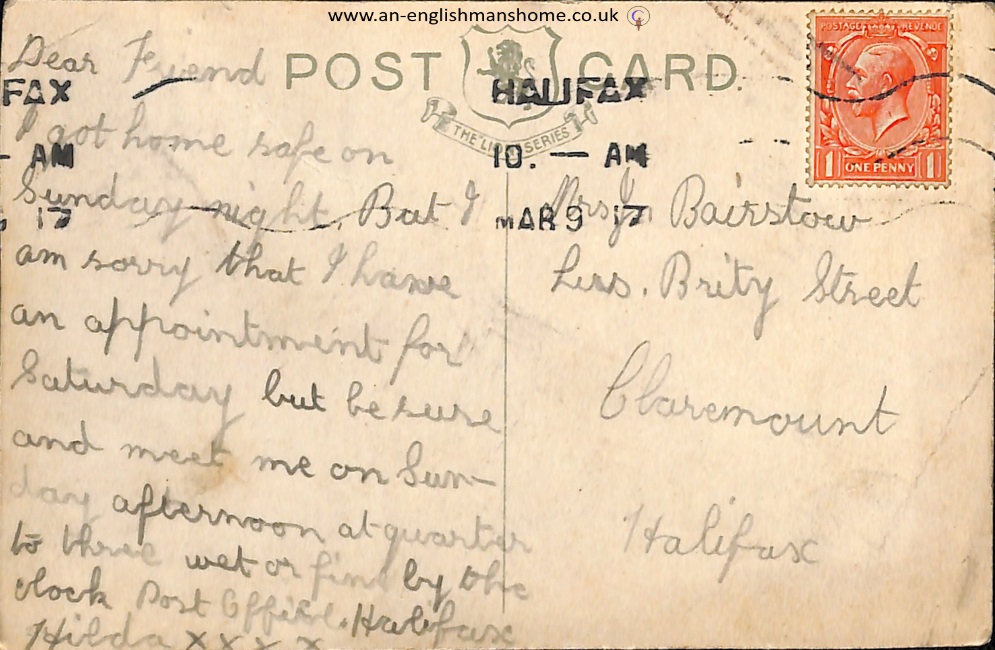 www.an-englishmanshome.co.uk
POST CARD.
THE "LION" SERIES
POSTAGE REVENUE
1 ONE PENNY 1
HALIFAX
10. — AM
MAR 9 17
FAX
— AM
17
Dear Friend
I got home safe on
Sunday night. But I
am sorry that I have
an appointment for
Saturday but be sure
and meet me on Sun-
day afternoon at quarter
to three wet or fine by the
clock Post Office. Halifax
Hilda X X X X
Bairstow
Street
Claremount
Halifax